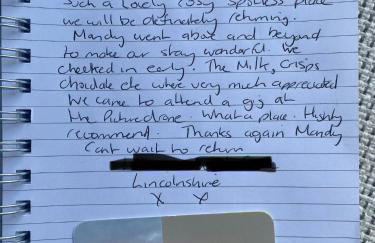 Such a lovely cosy spotless place
we will be definately returning.
Mandy went above and beyond
to make our stay wonderful. We
checked in early. The Milk, Crisps
chocolate etc where very much appreciated
We came to attend a gig at
the Picturedrome. What a place. Highly
recommend. Thanks again Mandy
Cant wait to return
Lincolnshire
X X